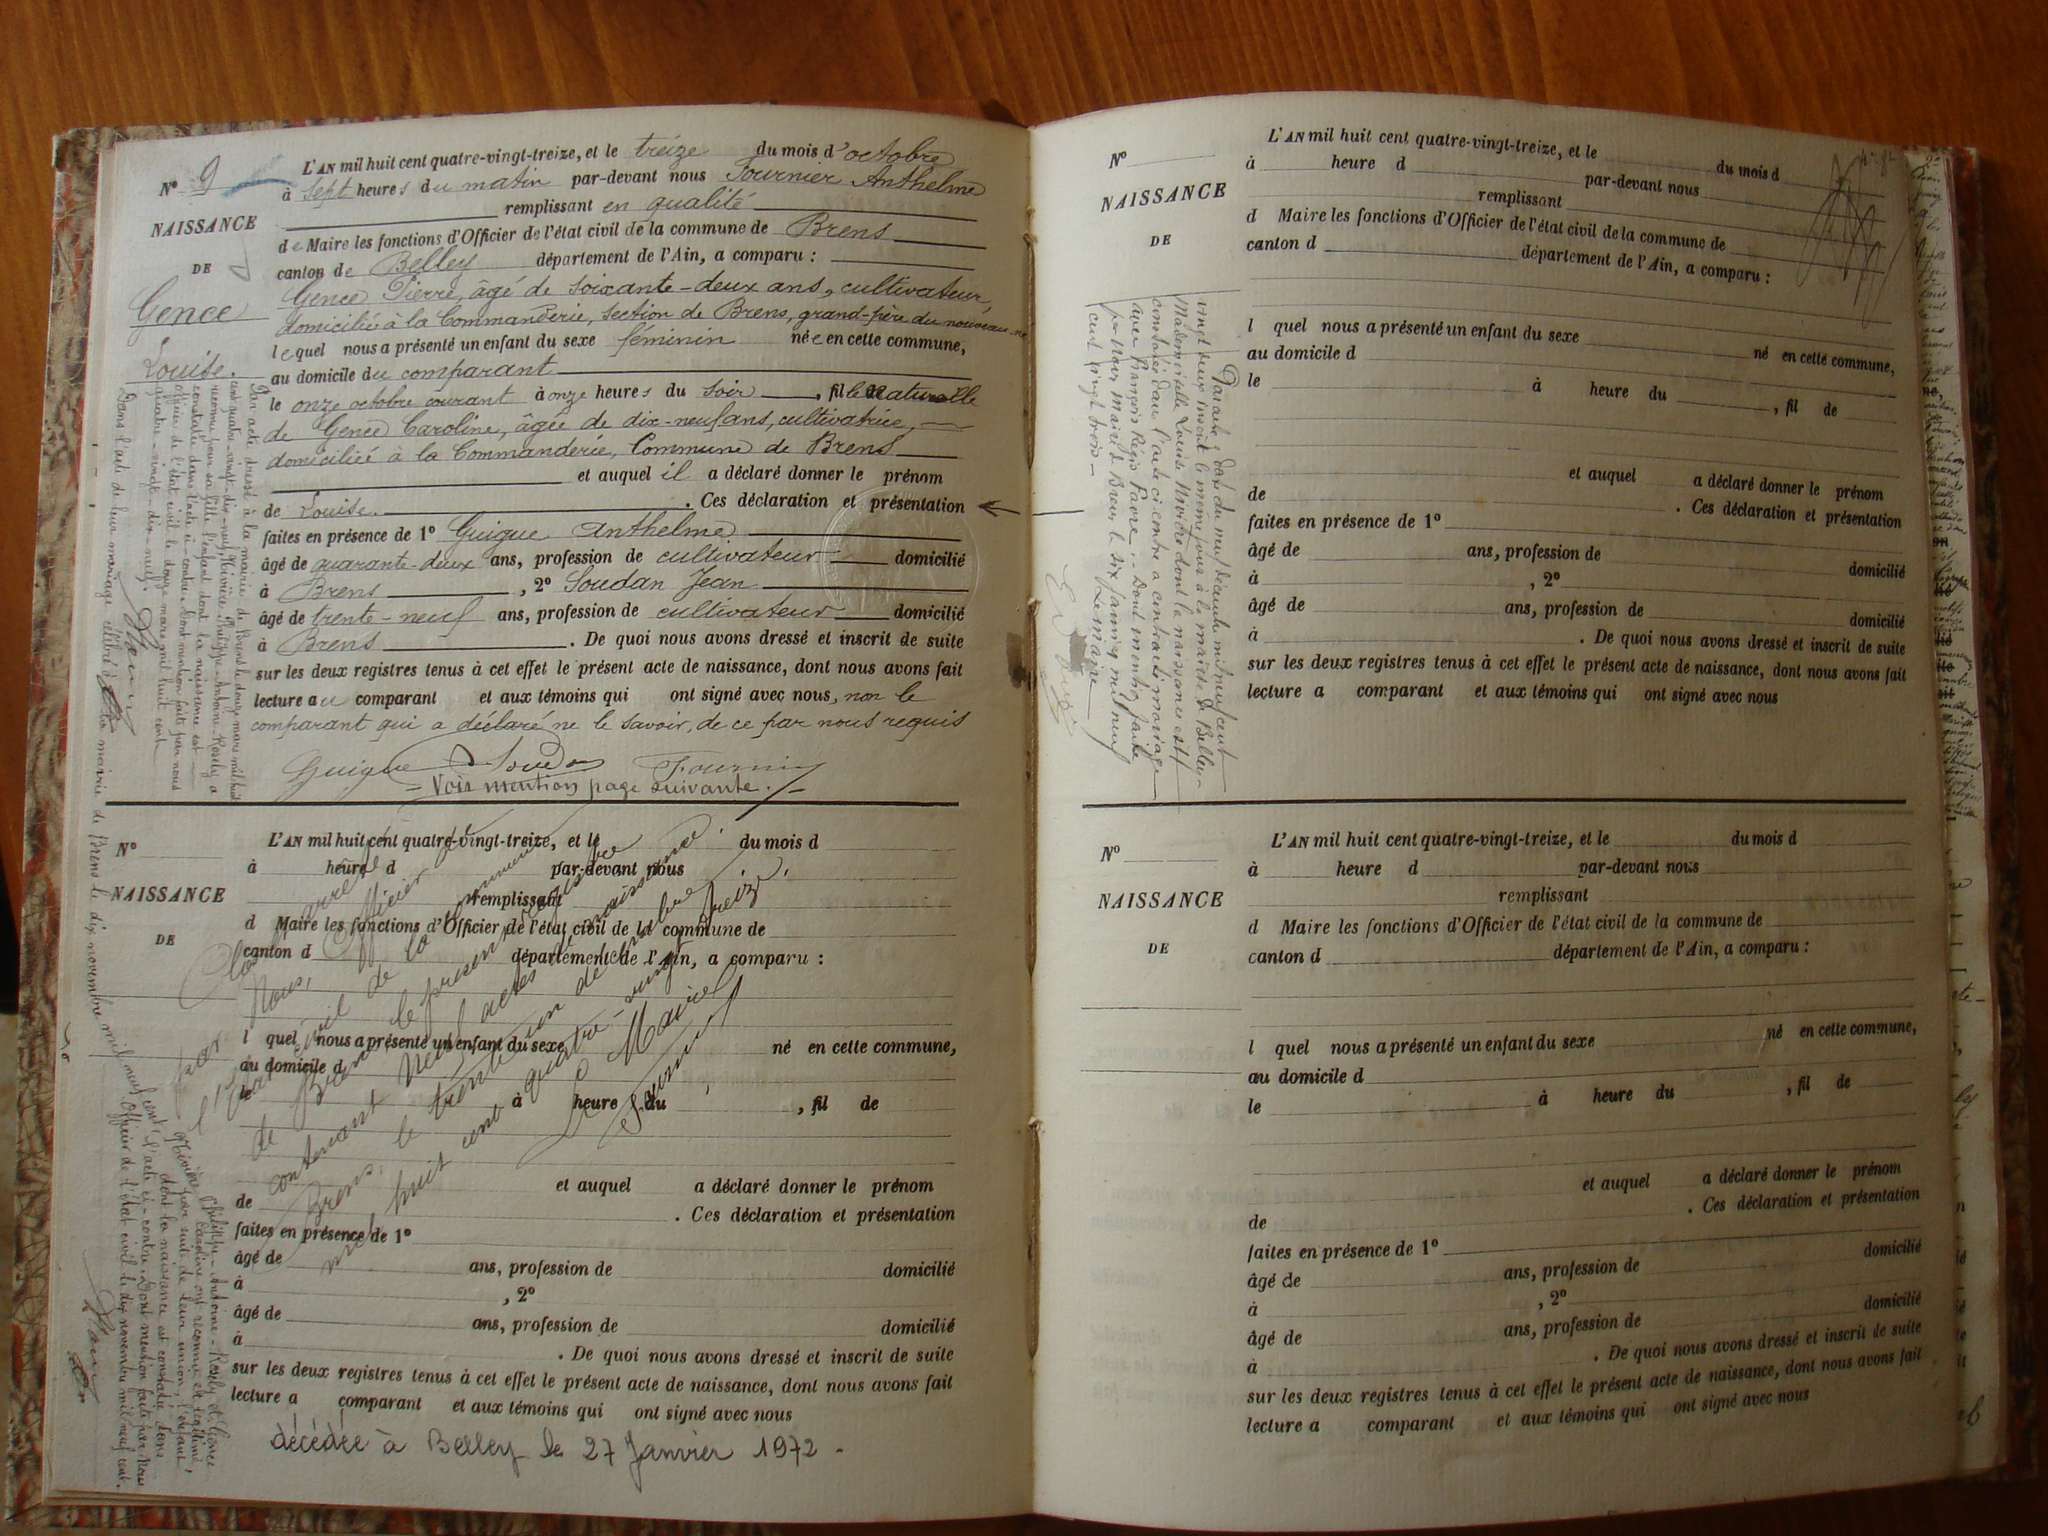 L'AN mil huit cent quatre-vingt-treize, et le treize du mois d'octobre
N° 9
à sept heures du matin par-devant nous Fournier Anthelme
remplissant en qualité
NAISSANCE
de Maire les fonctions d'Officier de l'état civil de la commune de Brens
DE
canton de Belley département de l'Ain, a comparu :
Gence
Gence Pierre, âgé de soixante-deux ans, cultivateur,
domicilié à la Commanderie, section de Brens, grand-père du nouveau-né
lequel nous a présenté un enfant du sexe féminin née en cette commune,
Louise.
au domicile du comparant
le onze octobre courant à onze heures du soir, fille naturelle
de Gence Caroline, âgée de dix-neuf ans, cultivatrice,
domiciliée à la Commanderie, Commune de Brens
et auquel il a déclaré donner le prénom
de Louise. Ces déclaration et présentation
faites en présence de 1° Guigue Anthelme
âgé de quarante-deux ans, profession de cultivateur domicilié
à Brens, 2° Soudan Jean
âgé de trente-neuf ans, profession de cultivateur domicilié
à Brens. De quoi nous avons dressé et inscrit de suite
sur les deux registres tenus à cet effet le présent acte de naissance, dont nous avons fait
lecture au comparant et aux témoins qui ont signé avec nous, non le
comparant qui a déclaré ne le savoir, de ce par nous requis
Guigue Soudan Fournier
Voir mention page suivante.
Par acte dressé à la mairie de Brens le douze mars mil huit
cent quatre-vingt-dix-neuf, Mivière Philippe-Antoine-Rosely a
reconnu pour sa fille l'enfant dont la naissance est
constatée dans l'acte ci-contre. Dont mention faite par nous
officier de l'état civil le douze mars mil huit cent
quatre-vingt-dix-neuf.
Dans l'acte de leur mariage célébré à la mairie de Brens le dix novembre mil neuf cent
Mivière Philippe-Antoine-Rosely et Gence
Caroline ont reconnu et légitimé,
par suite de leur union, l'enfant
dont la naissance est constatée dans
l'acte ci-contre. Dont mention faite par nous
Officier de l'état civil le dix novembre mil neuf cent.
N°
L'AN mil huit cent quatre-vingt-treize, et le du mois d
à heure d par-devant nous
remplissant
NAISSANCE
d Maire les fonctions d'Officier de l'état civil de la commune de
DE
canton d département de l'Ain, a comparu :
l quel nous a présenté un enfant du sexe né en cette commune,
au domicile d
le à heure du , fil de
et auquel a déclaré donner le prénom
de . Ces déclaration et présentation
faites en présence de 1°
âgé de ans, profession de domicilié
à , 2°
âgé de ans, profession de domicilié
à . De quoi nous avons dressé et inscrit de suite
sur les deux registres tenus à cet effet le présent acte de naissance, dont nous avons fait
lecture a comparant et aux témoins qui ont signé avec nous
Clos
par Nous, Officier de
l'état civil de la commune
de Brens, le présent registre
contenant Neuf actes de naissance
Brens, le trente-un décembre
mil huit cent quatre-vingt treize.
Le Maire
Fournier
décédée à Belley le 27 Janvier 1972.
N°
L'AN mil huit cent quatre-vingt-treize, et le du mois d
à heure d par-devant nous
NAISSANCE
remplissant
DE
d Maire les fonctions d'Officier de l'état civil de la commune de
canton d département de l'Ain, a comparu :
l quel nous a présenté un enfant du sexe
au domicile d né en cette commune,
le à heure du , fil de
et auquel a déclaré donner le prénom
de . Ces déclaration et présentation
faites en présence de 1°
âgé de ans, profession de domicilié
à , 2°
âgé de ans, profession de domicilié
à . De quoi nous avons dressé et inscrit de suite
sur les deux registres tenus à cet effet le présent acte de naissance, dont nous avons fait
lecture a comparant et aux témoins qui ont signé avec nous
Par acte dans du neuf décembre mil neuf cent
vingt deux inscrit le même jour à la mairie de Belley
Mademoiselle Louise Mivière dont la naissance est
constatée dans l'acte ci contre a contracté mariage
avec François Régis Favre. Dont mention faite
par Nous maire de Brens le six janvier mil neuf
cent vingt trois
Le maire
N°
L'AN mil huit cent quatre-vingt-treize, et le du mois d
à heure d par-devant nous
NAISSANCE
remplissant
d Maire les fonctions d'Officier de l'état civil de la commune de
DE
canton d département de l'Ain, a comparu :
l quel nous a présenté un enfant du sexe né en cette commune,
au domicile d
le à heure du , fil de
et auquel a déclaré donner le prénom
de . Ces déclaration et présentation
faites en présence de 1°
âgé de ans, profession de domicilié
à , 2°
âgé de ans, profession de domicilié
à . De quoi nous avons dressé et inscrit de suite
sur les deux registres tenus à cet effet le présent acte de naissance, dont nous avons fait
lecture a comparant et aux témoins qui ont signé avec nous